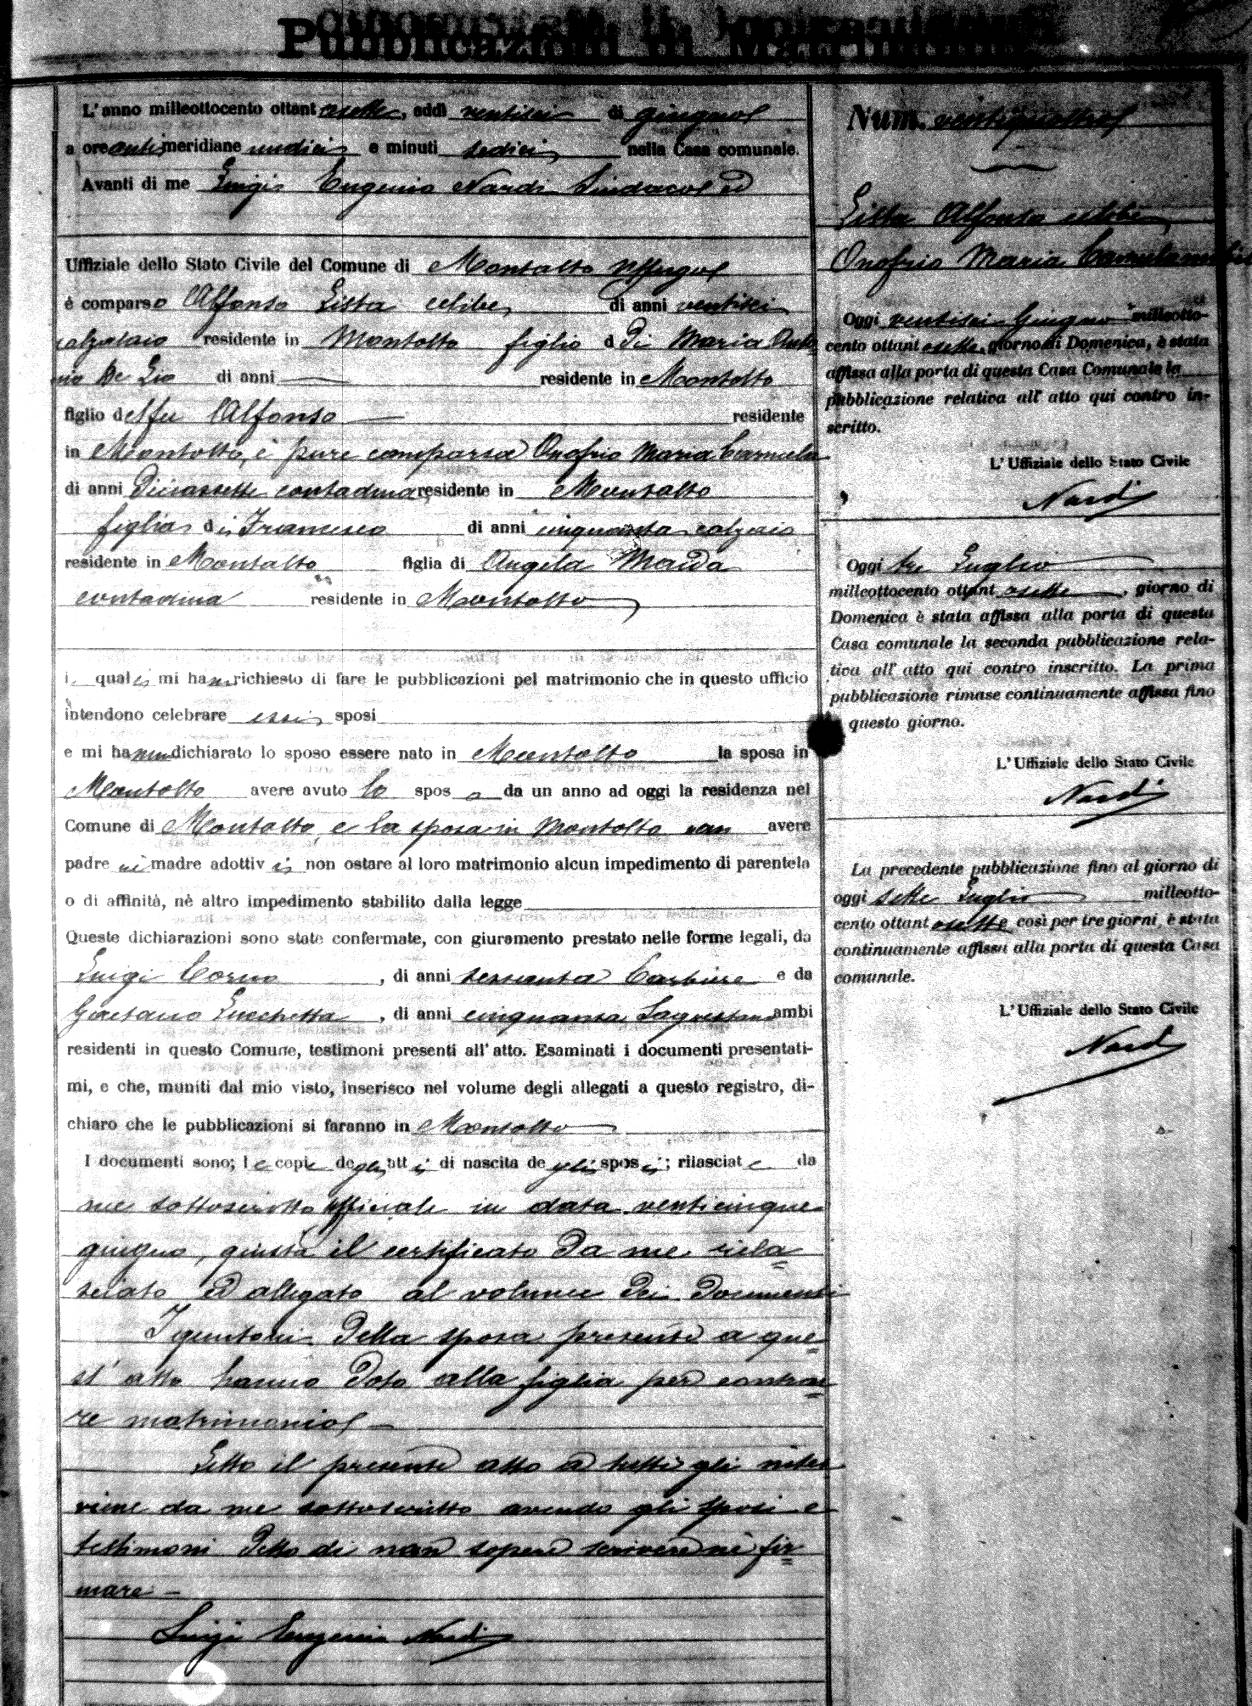 Pubblicazioni di Matrimonio
L'anno milleottocento ottantasette, addì ventisei di giugno
a ore antimeridiane undici e minuti sedici nella Casa comunale.
Avanti di me Luigi Eugenio Nardi Sindaco ed
Uffiziale dello Stato Civile del Comune di Montalto Uffugo
è comparso Alfonso Litta celibe di anni ventisei
calzolaio residente in Montalto figlio di Maria Anto
nia De Lio di anni residente in Montalto
figlio del fu Alfonso residente
in Montalto, è pure comparsa Onofrio Maria Carmela
di anni diciassette contadina residente in Montalto
figlia di Francesco di anni cinquanta
residente in Montalto figlia di Angela Maida
contadina residente in Montalto
i quali mi hanno richiesto di fare le pubblicazioni pel matrimonio che in questo ufficio
intendono celebrare essi sposi
e mi hanno dichiarato lo sposo essere nato in Montalto la sposa in
Montalto avere avuto lo sposo da un anno ad oggi la residenza nel
Comune di Montalto, e la sposa in Montalto non avere
padre nè madre adottivi non ostare al loro matrimonio alcun impedimento di parentela
o di affinità, nè altro impedimento stabilito dalla legge
Queste dichiarazioni sono state confermate, con giuramento prestato nelle forme legali, da
Luigi Corno, di anni sessanta barbiere e da
Gaetano Lucchetta, di anni cinquanta Sagrestano ambi
residenti in questo Comune, testimoni presenti all'atto. Esaminati i documenti presentati-
mi, e che, muniti dal mio visto, inserisco nel volume degli allegati a questo registro, di-
chiaro che le pubblicazioni si faranno in Montalto
I documenti sono; le copie degli atti di nascita degli sposi; rilasciate da
me sottoscritto Ufficiale in data venticinque
giugno, giusta il certificato da me rila
sciato ed allegato al volume dei documenti
I genitori della sposa presenti a que
st'atto hanno dato alla figlia per contrar
re matrimonio
Letto il presente atto a tutti gli inter
viene da me sottoscritto avendo gli sposi e
testimoni detto di non sapere scrivere nè fir
mare
Luigi Eugenio Nardi
Num. ventiquattro
Litta Alfonso celibe
Onofrio Maria Carmela nubile
Oggi ventisei Giugno milleotto-
cento ottantasette, giorno di Domenica, è stata
affissa alla porta di questa Casa Comunale la
pubblicazione relativa all'atto qui contro in-
scritto.
L'Uffiziale dello Stato Civile
Nardi
Oggi tre Luglio
milleottocento ottantasette, giorno di
Domenica è stata affissa alla porta di questa
Casa comunale la seconda pubblicazione rela-
tiva all'atto qui contro inscritto. La prima
pubblicazione rimase continuamente affissa fino
questo giorno.
L'Uffiziale dello Stato Civile
Nardi
La precedente pubblicazione fino al giorno di
oggi sette Luglio milleotto-
cento ottantasette così per tre giorni, è stata
continuamente affissa alla porta di questa Casa
comunale.
L'Uffiziale dello Stato Civile
Nardi